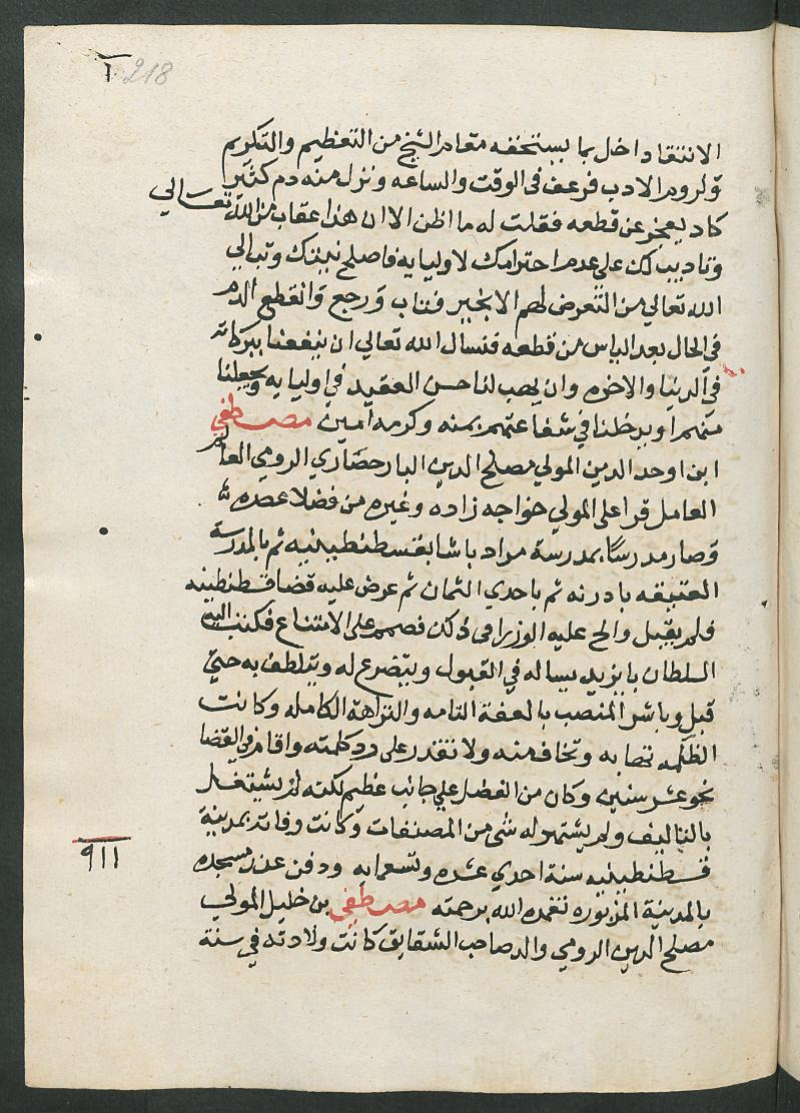 218
الانتقاد اخل بما يستحقه مقام الشيخ من التعظيم والتكريم
ولزوم الادب فرعف في الوقت والساعه ونزل منه دم كثير
كاد يعجز عن قطعه فقلت له ما اظن الا ان هذا عقاب من الله تعالي
وتاديب لك علي عدم احترامك لاوليايه فاصلح نيتك وتب الي
الله تعالي من التعرض لهم الا بخير فتاب ورجع وانقطع الدم
في الحال بعد الياس من قطعه فنسال الله تعالي ان ينفعنا ببركاته
في الدنيا والاخره وان يهب لنا حسن العقيده في اوليايه ويجعلنا
منهم او يدخلنا في شفاعتهم بمنه وكرمه امين مصطفي
ابن اوحد الدين المولي مصلح الدين اليار حصاري الرومي العالم
العامل قرا علي المولي خواجه زاده وغيره من فضلا عصره
وصار مدرسا بمدرسة مراد باشا بقسطنطينيه ثم بالمدرسة
العتيقه بادرنه ثم باحدي الثمان ثم عرض عليه قضا قسطنطينه
فلم يقبل والح عليه الوزرا في ذلك فصمم علي الامتناع فكتب اليه
السلطان بايزيد يساله في القبول ويتضرع له ويتلطف به حتي
قبل وباشر المنصب بالعفة التامه والنزاهة الكامله وكانت
الظلمه تهابه وتخاف منه ولا تقدر علي رد كلمته واقام في القضا
نحو عشر سنين وكان من الفضل علي جانب عظيم لكنه لم يشتغل
بالتاليف ولم يشتهر له شي من المصنفات وكانت وفاته بمدينة
قسطنطينيه سنة احدي عشره وتسعمايه ودفن عند مسجده
٩١١
بالمدينة المزبوره تغمده الله برحمته مصطفي بن خليل المولي
مصلح الدين الرومي والد صاحب الشقايق كانت ولادته في سنة